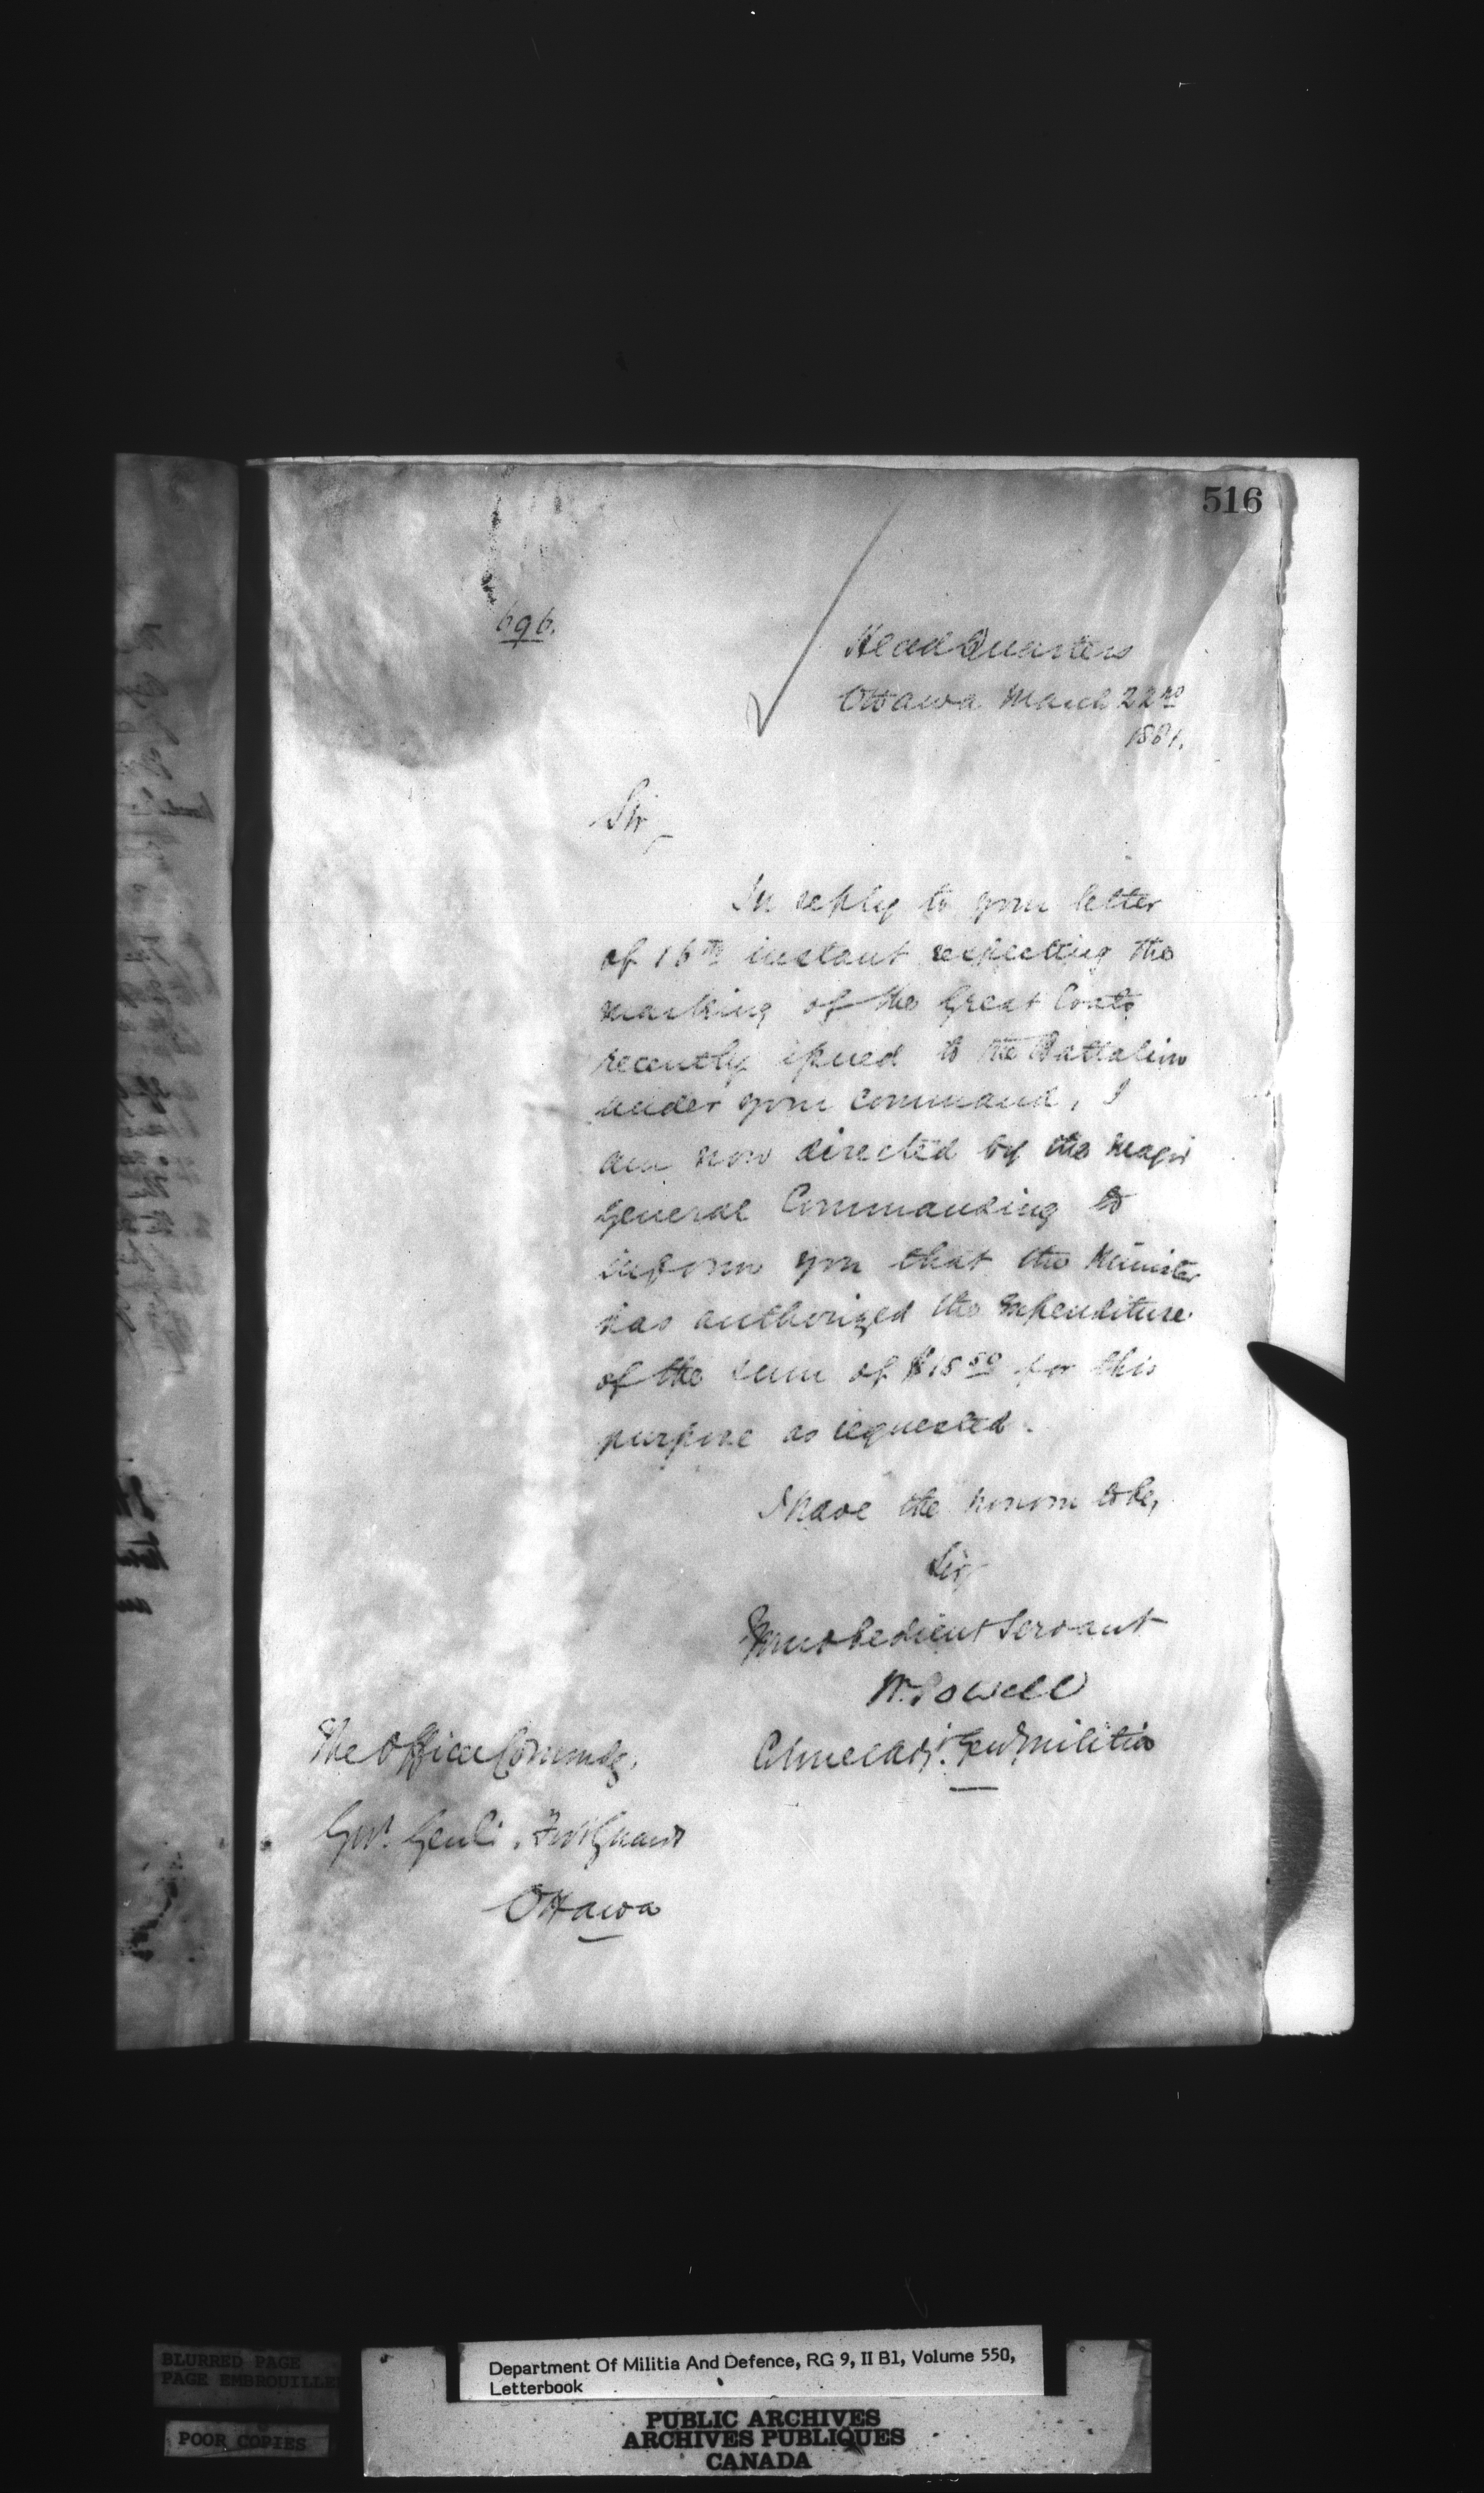 516
696.
Head Quarters
Ottawa March 22nd
1881.
Sir,
In reply to your letter
of 16th instant respecting the
marking of the Great Coats
recently issued to the Battalion
under your command, I
am now directed by the Major
General Commanding to
inform you that the Minister
has authorized the expenditure
of the sum of $15 50 for this
purpose as requested.
I have the honour to be,
Sir,
Your obedient Servant
W. Powell
Colonel Adj. Genl Militia
The Officer Commdg,
Govr. Genl's. Foot Guards
Ottawa
BLURRED PAGE
PAGE EMBROUILLE
POOR COPIES
Department Of Militia And Defence, RG 9, II B1, Volume 550,
Letterbook
PUBLIC ARCHIVES
ARCHIVES PUBLIQUES
CANADA